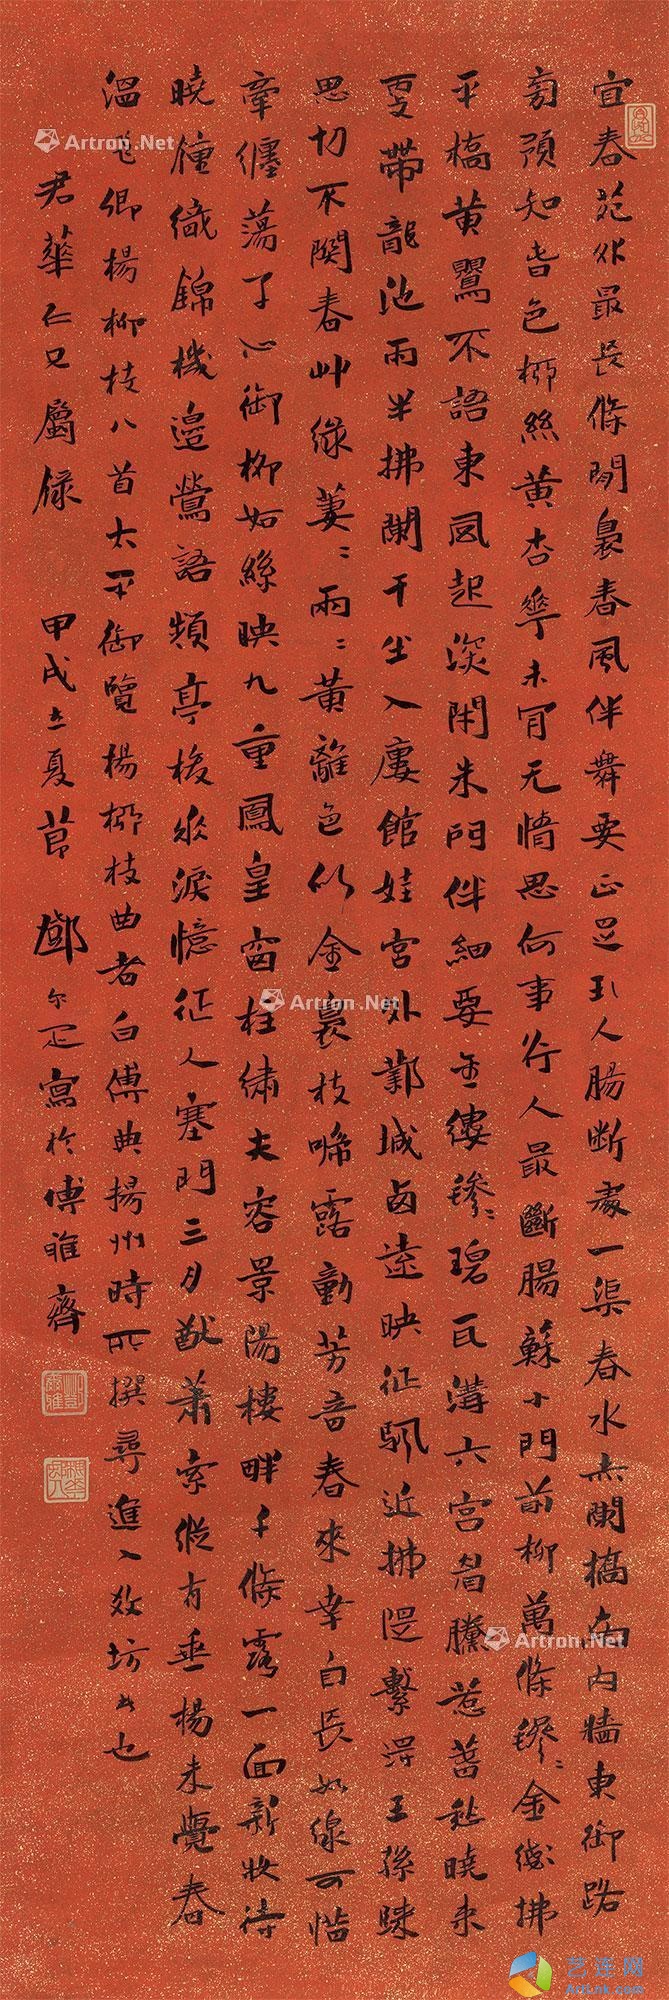 宜春苑外最長條閒裊春風伴舞要正是玉人腸斷處一渠春水赤闌橋南內牆東御路
旁預知春色柳絲黃杏華未肎无情思何事行人最斷腸蘇小門前柳萬條毿〻金綫拂
平橋黃鸎不語東風起深閉朱門伴細要金縷毿〻碧瓦溝六宮眉黱惹愁曉來
更帶龍池雨半拂闌干半入廔館娃宮外鄴城西遠映征颿近拂隄繫得王孫歸
思切不關春艸綠萋〻兩〻黃離色似金裊枝啼露動芳音春來幸自長如線可惜
牽纏蕩子心御柳如絲映九重鳳皇窗柱繡夫容景陽樓畔千條露一面新妝待
曉鐘織錦機邊鶯語頻亭梭垂淚憶征人塞門三月猷蕭索縱有垂楊未覺春
溫飛卿楊柳枝八首太平御覽楊柳枝曲者白傅典揚州時所撰尋進入教坊也
君華仁兄屬錄 甲戌立夏節 鄧尔疋寫於博雅齋
Artron.Net
Artron.Net
Artron.Net
艺连网
ArtLnk.com